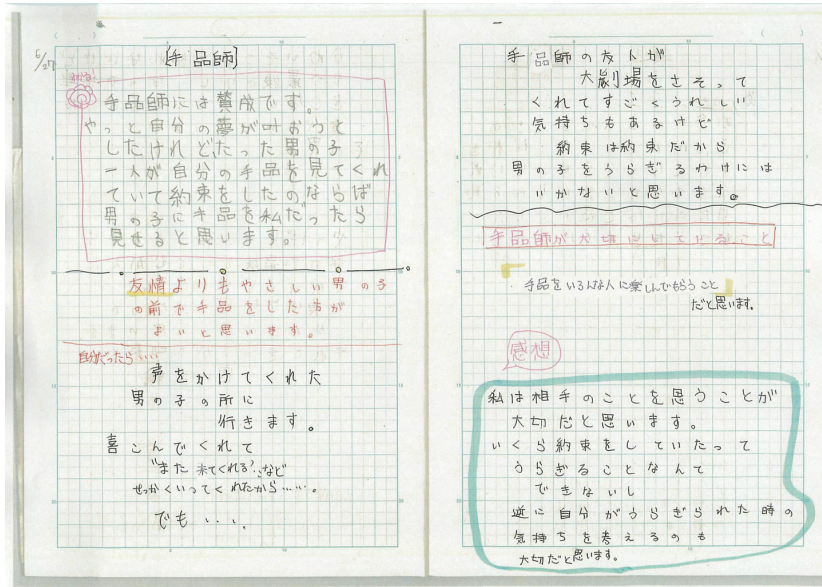 6/27
[手品師]
手品師には賛成です。
やっと自分の夢が叶おうと
したけれどたった男の子
一人が自分の手品を見てくれ
ていて約束をしたのならば
男の子に手品を私だったら
見せると思います。
友情よりもやさしい男の子
の前で手品をした方が
よいと思います。
自分だったら・・・・
声をかけてくれた
男の子の所に
行きます。
喜こんでくれて
"また来てくれる?"など
せっかくいってくれたから・・・・・。
でも・・・.
手品師の友人が
大劇場をさそって
くれてすごくうれしい
気持ちもあるけど
約束は約束だから
男の子をうらぎるわけには
いかないと思います。
手品師が大切にしていること
手品をいろんな人に楽しんでもらうこと
だと思います。
感想
私は相手のことを思うことが
大切だと思います。
いくら約束をしていたって
うらぎることなんて
できないし
逆に自分がうらぎられた時の
気持ちを考えるのも
大切だと思います。